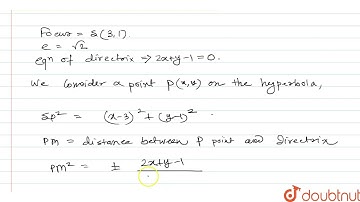 Focus = S(3,1).
e = √2
eqn of directrix → 2x+y-1=0.
We consider a point P(x,y) on the hyperbola,
SP² = (x-3)² + (y-1)² .
PM = distance between P point and directrix
PM² = ± 2x+y-1
doubtnut